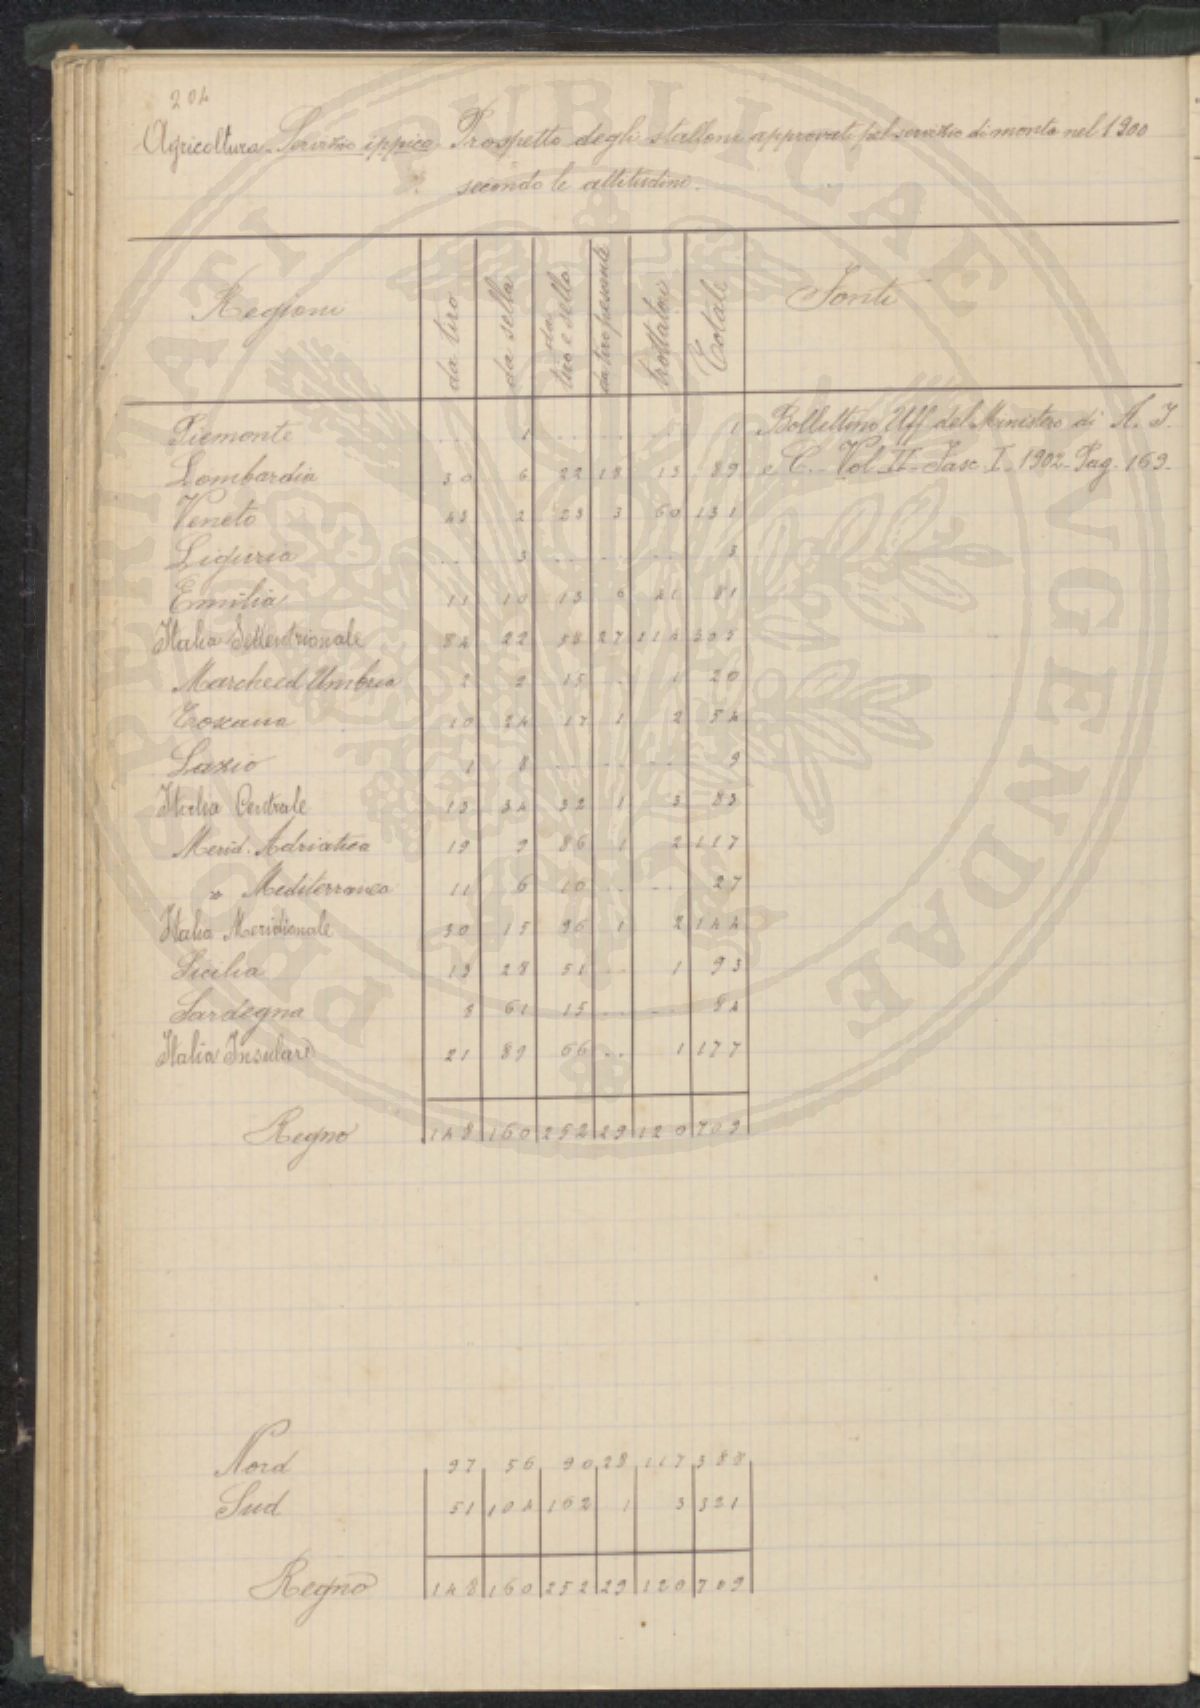 204
Agricoltura - Servizio ippico Prospetto degli stalloni approvati pel servizio di monta nel 1900
secondo le attitudini.
Regioni da tiro da sella da tiro e sella da tiro pesante trottatori Totale Fonti
Piemonte .. 1 .. .. .. 1 Bollettino Uff. del Ministero di A. I.
Lombardia 30 6 22 18 13 89 e C. - Vol. II - Fasc. I - 1902 - Pag. 169 -
Veneto 43 2 23 3 60 131
Liguria .. 3 .. .. .. 3
Emilia 11 10 13 6 41 81
Italia Settentrionale 84 22 58 27 114 305
Marche ed Umbria 2 2 15 .. 1 20
Toscana 10 24 17 1 2 54
Lazio 1 8 .. .. .. 9
Italia Centrale 13 34 32 1 3 83
Merid. Adriatica 19 9 86 1 2 117
" Mediterranea 11 6 10 .. .. 27
Italia Meridionale 30 15 96 1 2 144
Sicilia 13 28 51 .. 1 93
Sardegna 8 61 15 .. .. 84
Italia Insulare 21 89 66 .. 1 177
Regno 148 160 252 29 120 709
Nord 97 56 90 28 117 388
Sud 51 104 162 1 3 321
Regno 148 160 252 29 120 709
PERITATI PUBLICAE AUGENDAE